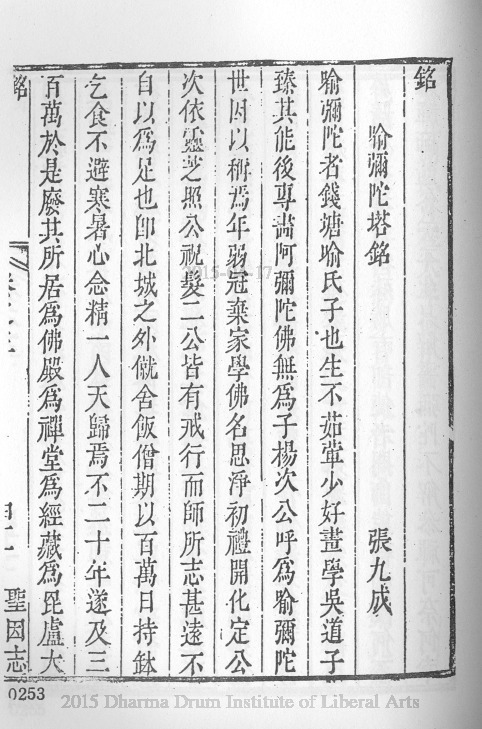 銘
喻彌陀塔銘 張九成
喻彌陀者錢塘喻氏子也生不茹葷少好畫學吳道子
臻其能後專畫阿彌陀佛無爲子楊次公呼爲喻彌陀
世因以稱焉年弱冠棄家學佛名思淨初禮開化定公
次依靈芝照公祝髮二公皆有戒行而師所志甚遠不
自以爲足也卽北城之外僦舍飯僧期以百萬日持鉢
乞食不避寒暑心念精一人天歸焉不二十年遂及三
百萬於是廢其所居爲佛殿爲禪堂爲經藏爲毘盧大
銘
聖因志
0253
2015 Dharma Drum Institute of Liberal Arts